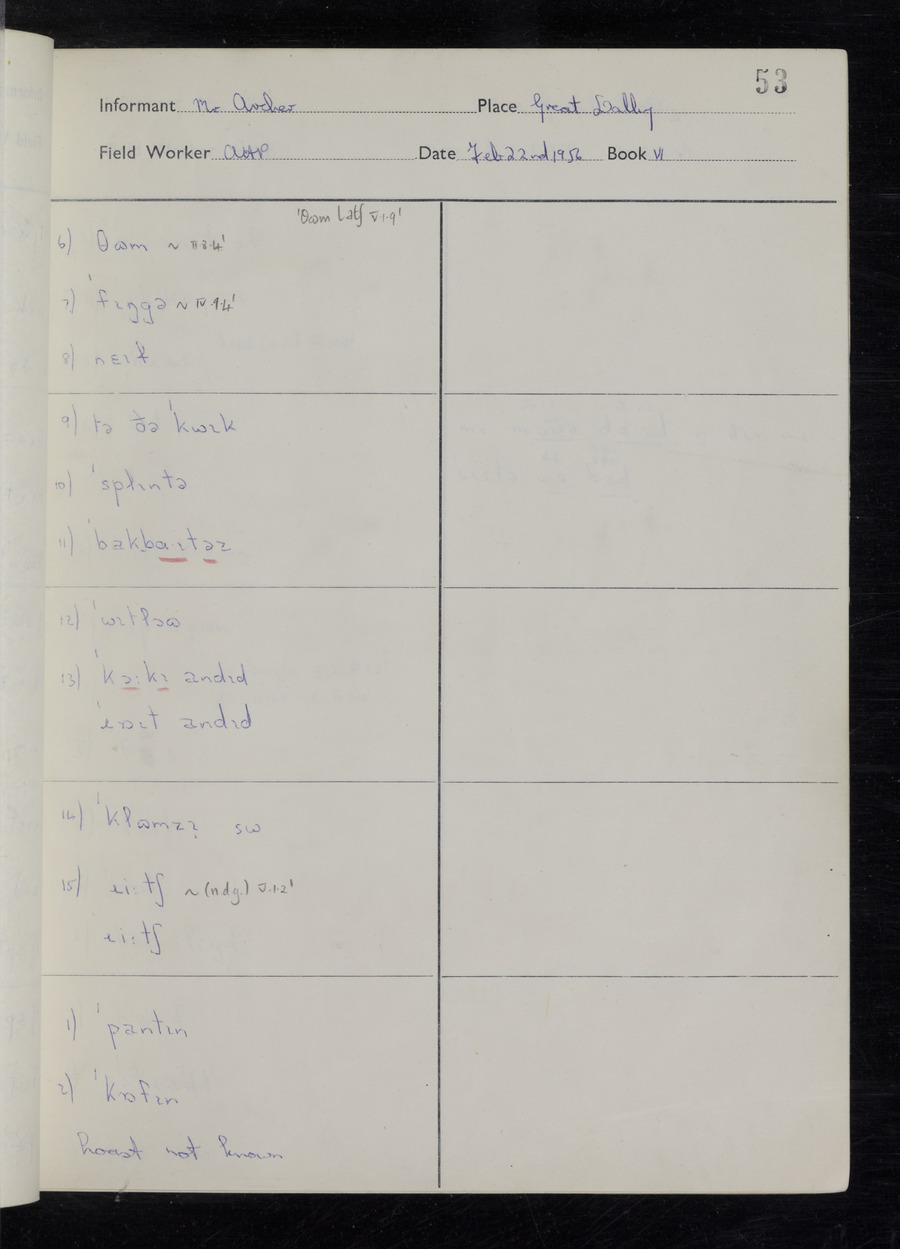 53
Informant Mr Archer Place Great Dalby
Field Worker Date Feb 22nd 1956 Book VI
'θɷm latʃ V.1.9'
6) θɷm ~
7) 'fɪŋgə ~ IV.9.4'
8) nɛɪɫ
9) tə ðə 'kwɪk
10) 'splɪntə
11) 'bakbaɪtəz
12) 'wɪtləɷ
13) 'kə:kɪ andɪd
andɪd
14) 'klɷmzɪ
15) i:tʃ ~ (n.d.g.) V.1.2'
i:tʃ
1) 'pantɪn
2) 'kɒfɪn
hoast not known